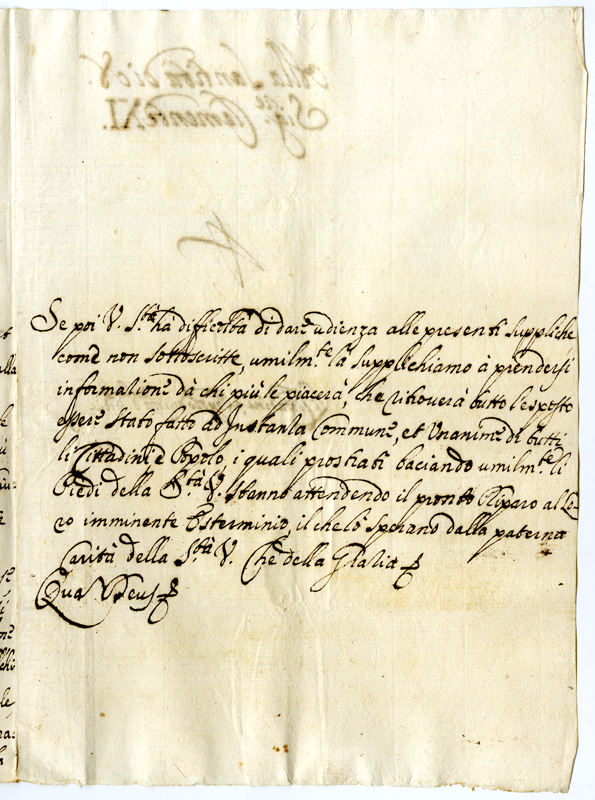 Alla Santità di N.
Sig.re Clemente XI.
Se poi V. S.tà hà difficoltà di dare udienza alle presenti suppliche
come non sottoscritte, umilm.te la supplichiamo à prendersi
informatione dà chi più le piacerà, che ritroverà tutto l'esposto
essere stato fatto ad Instanza Commune, et Unanime di tutti
li Cittadini, e Popolo, i quali prostrati baciando umilm.te li
Piedi della S.tà V. stanno attendendo il pronto Riparo al Lo-
ro imminente Esterminio, il che lo sperano dalla paterna
Carità della S.tà V. Che della Gratia
Qua Deus